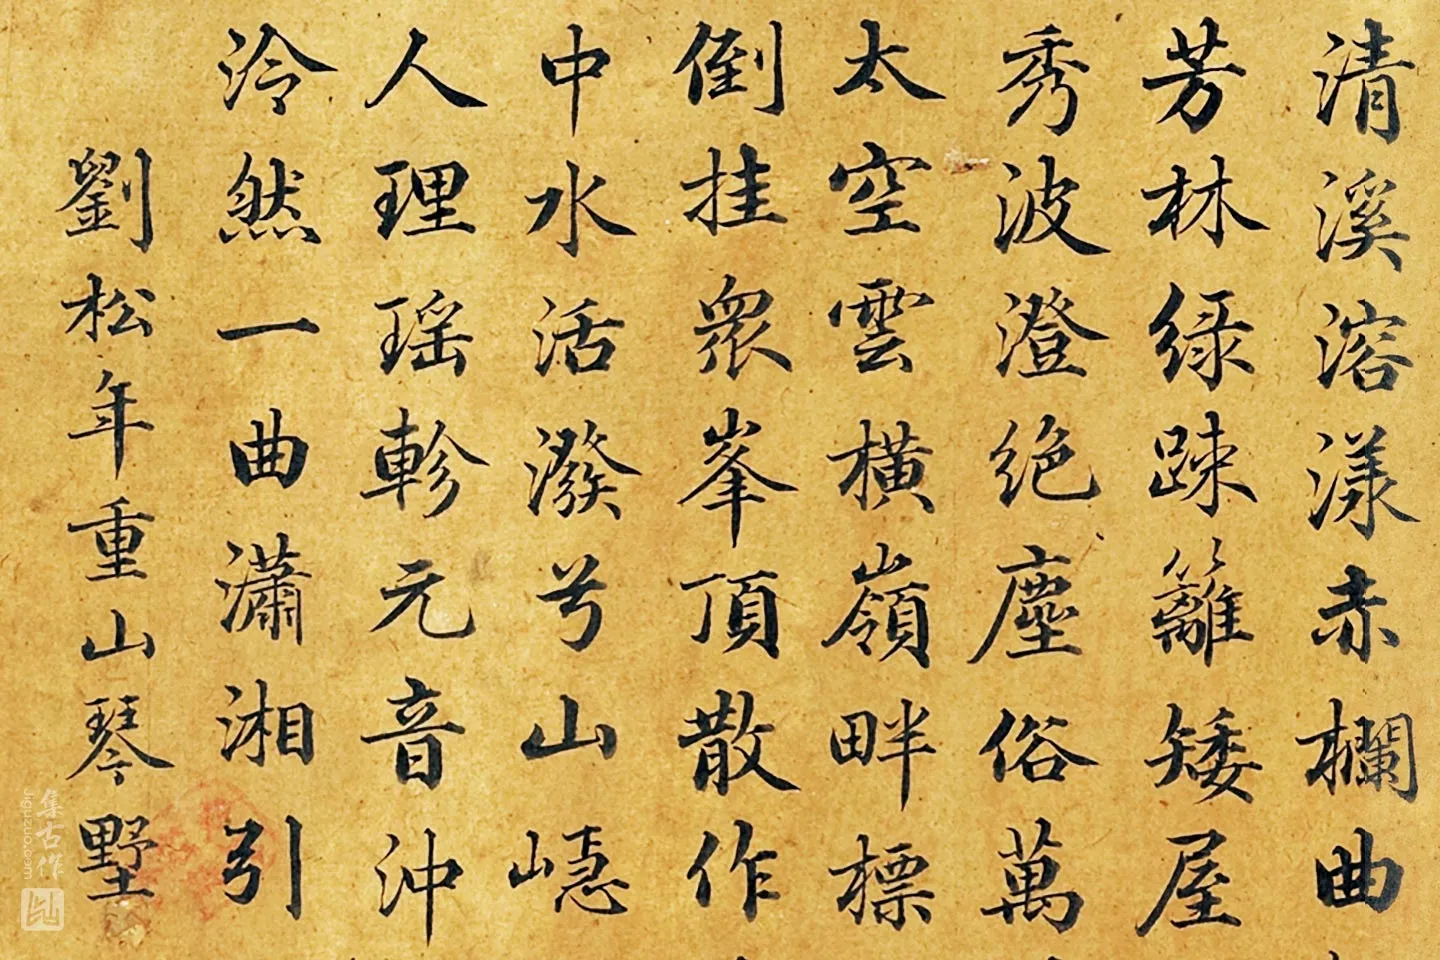 清溪溶漾赤欄曲
芳林綠踈籬矮屋
秀波澄絶塵俗萬
太空雲橫嶺畔標
倒挂衆峯頂散作
中水活潑兮山
人理瑶軫元音沖
泠然一曲瀟湘引
劉松年重山琴墅
集古作
jiguzuo.com